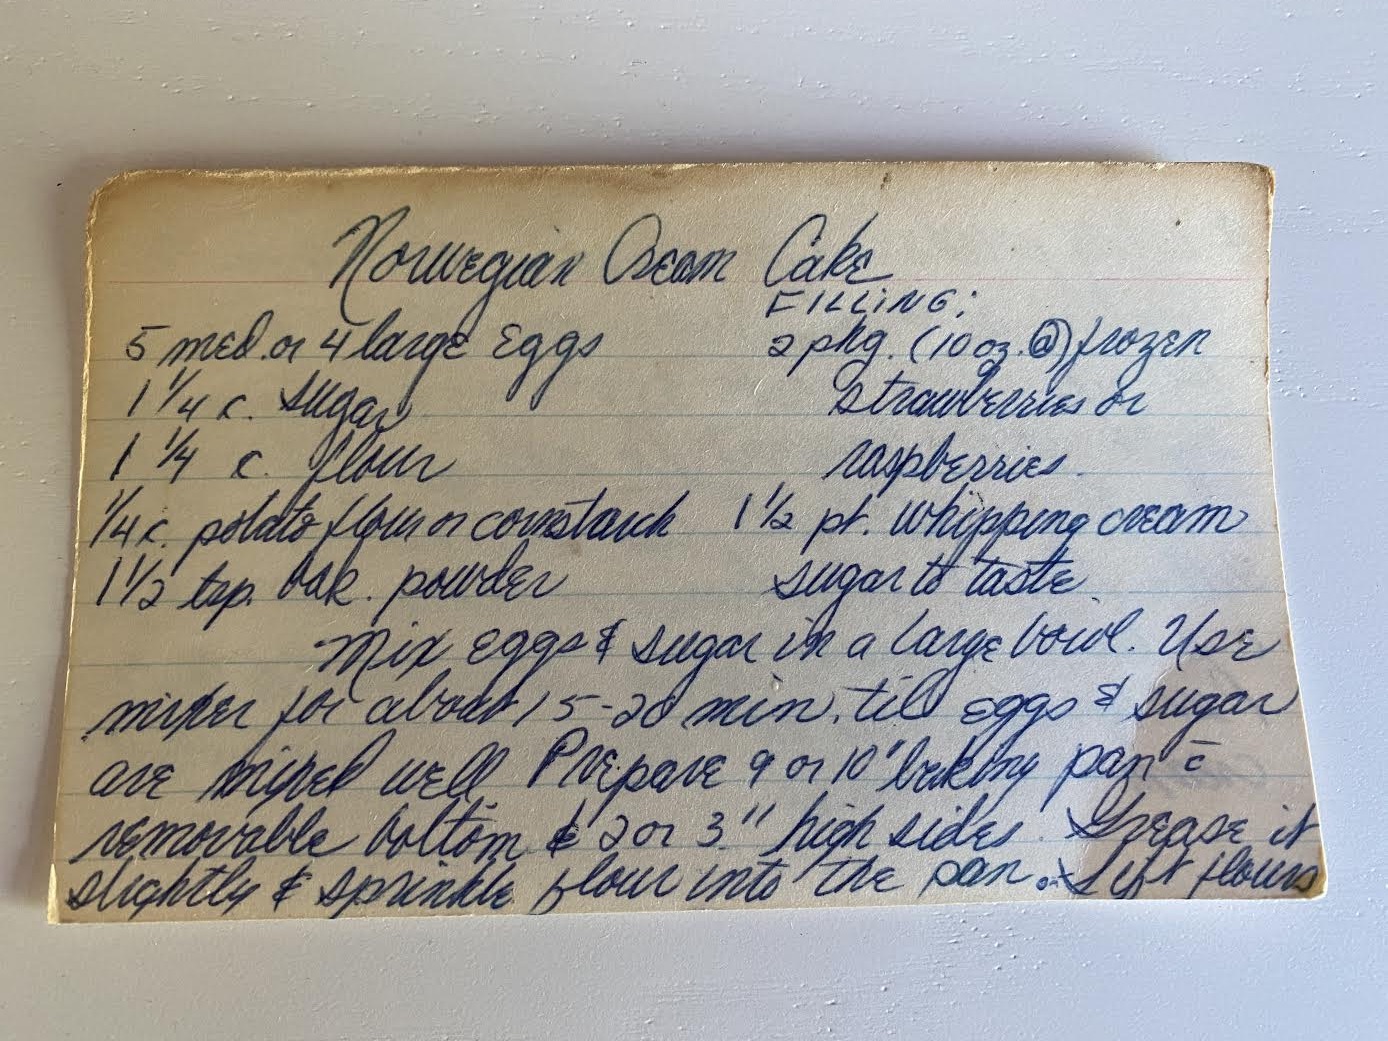 Norwegian Cream Cake
FILLING:
5 med. or 4 large eggs
2 pkg. (10 oz. @) frozen
1 1/4 c. sugar
strawberries or
1 1/4 c. flour
raspberries.
1/4 c. potato flour or cornstarch
1 1/2 pt. whipping cream
1 1/2 tsp. bak. powder
sugar to taste
Mix eggs & sugar in a large bowl. Use
mixer for about 15-20 min. til eggs & sugar
are mixed well Prepare 9 or 10" baking pan c̄
removable bottom & 2 or 3" high sides. Grease it
slightly & sprinkle flour into the pan. Sift flours